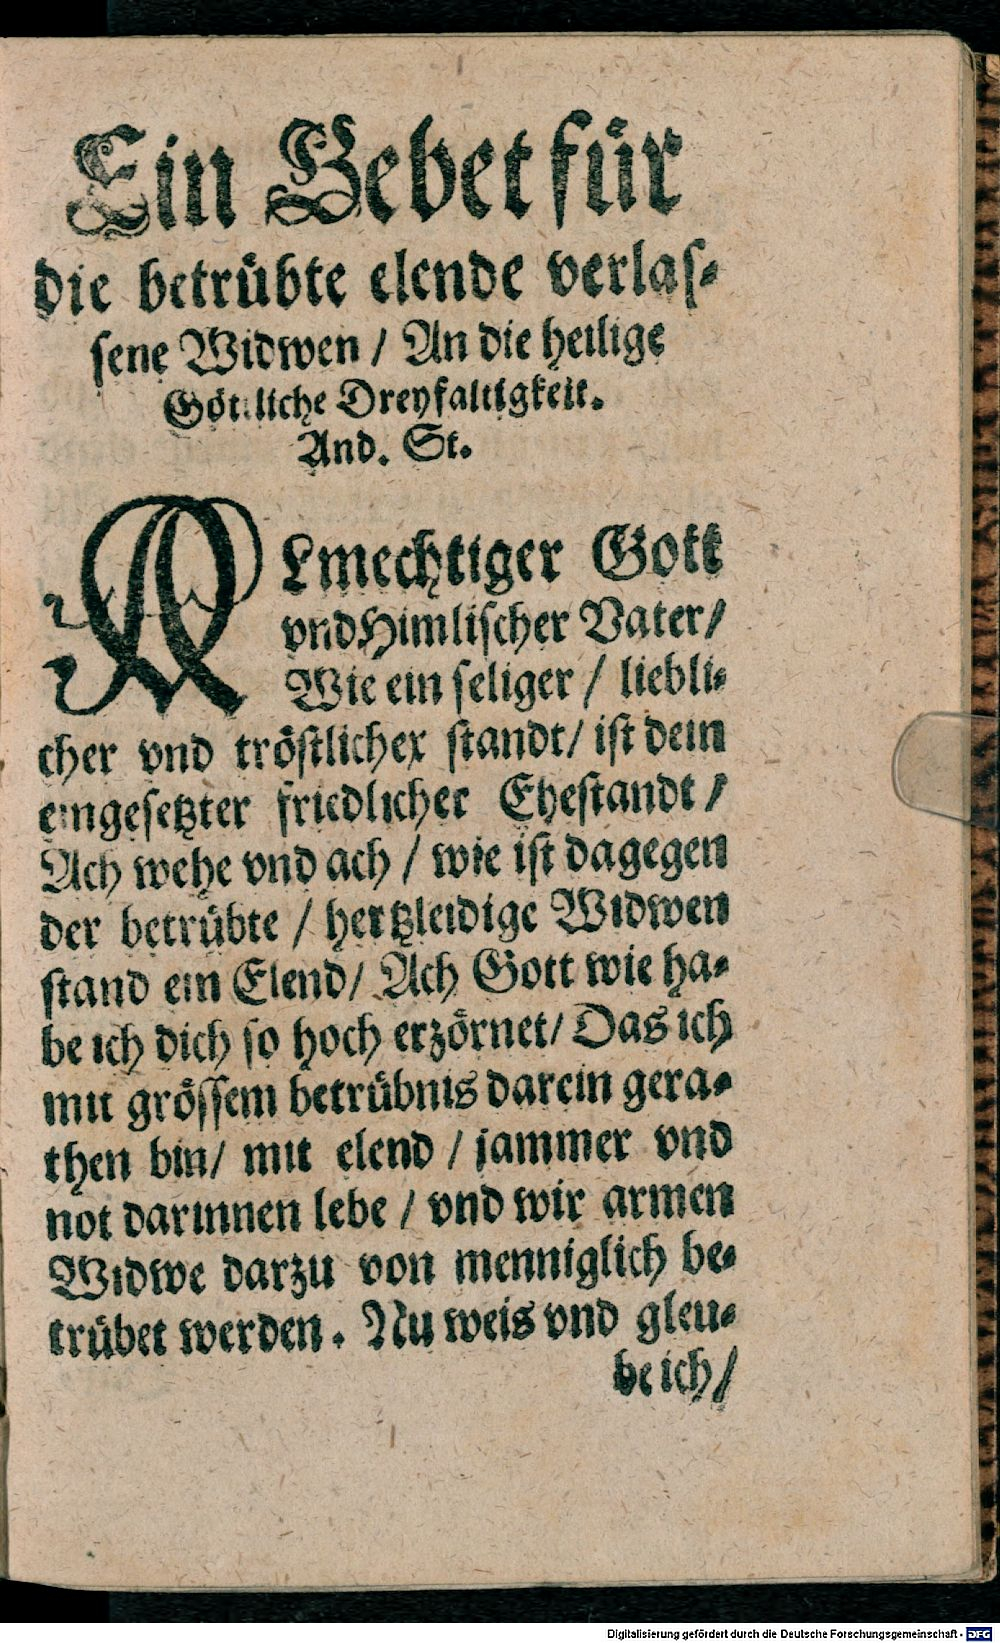 Ein Gebet für
die betrübte elende verlas⸗
sene Widwen / An die heilige
Göttliche Dreyfaltigkeit.
And. St.
ALmechtiger Gott
vnd Himlischer Vater/
Wie ein seliger / liebli⸗
cher vnd tröstlicher standt/ ist dein
eingesetzter friedlicher Ehestandt /
Ach wehe vnd ach / wie ist dagegen
der betrübte / hertzleidige Widwen
stand ein Elend/ Ach Gott wie ha⸗
be ich dich so hoch erzörnet/ Das ich
mit grössem betrübnis darein gera⸗
then bin/ mit elend / jammer vnd
not darinnen lebe / vnd wir armen
Widwe darzu von menniglich be⸗
trübet werden. Nu weis vnd gleu⸗
be ich/
Digitalisierung gefördert durch die Deutsche Forschungsgemeinschaft - DFG